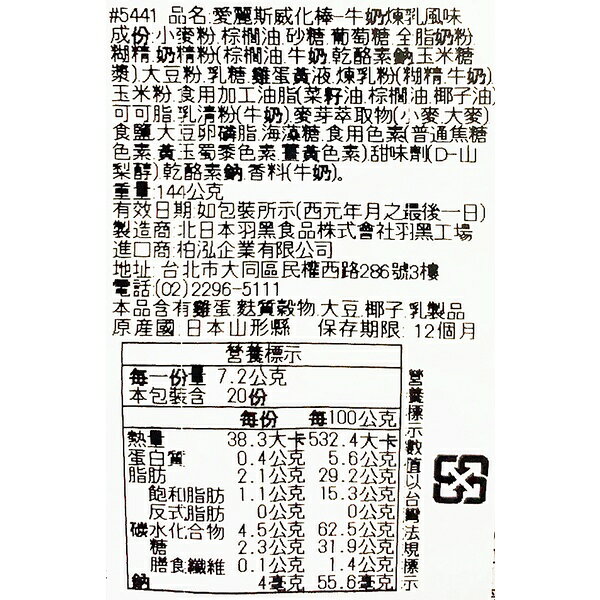 #5441 品名.愛麗斯威化棒-牛奶煉乳風味
成份:小麥粉.棕櫚油.砂糖.葡萄糖.全脂奶粉
糊精.奶精粉(棕櫚油.牛奶.乾酪素鈉.玉米糖
漿).大豆粉.乳糖.雞蛋黃液.煉乳粉(糊精.牛奶)
玉米粉.食用加工油脂(菜籽油.棕櫚油.椰子油)
可可脂.乳清粉(牛奶).麥芽萃取物(小麥.大麥)
食鹽.大豆卵磷脂.海藻糖.食用色素(普通焦糖
色素.黃玉蜀黍色素.薑黃色素).甜味劑(D-山
梨醇).乾酪素鈉.香料(牛奶)。
重量:144公克
有效日期:如包裝所示(西元年月之最後一日)
製造商:北日本羽黑食品株式會社羽黑工場
進口商:柏泓企業有限公司
地址:台北市大同區民權西路286號3樓
電話:(02)2296-5111
本品含有雞蛋.麩質穀物.大豆.椰子.乳製品
原產國:日本山形縣 保存期限:12個月
營養標示
每一份量 7.2公克
本包裝含 20份
每份 每100公克
熱量 38.3大卡 532.4大卡
蛋白質 0.4公克 5.6公克
脂肪 2.1公克 29.2公克
飽和脂肪 1.1公克 15.3公克
反式脂肪 0公克 0公克
碳水化合物 4.5公克 62.5公克
糖 2.3公克 31.9公克
膳食纖維 0.1公克 1.4公克
鈉 4毫克 55.6毫克
營養標示數值以台灣法規標示